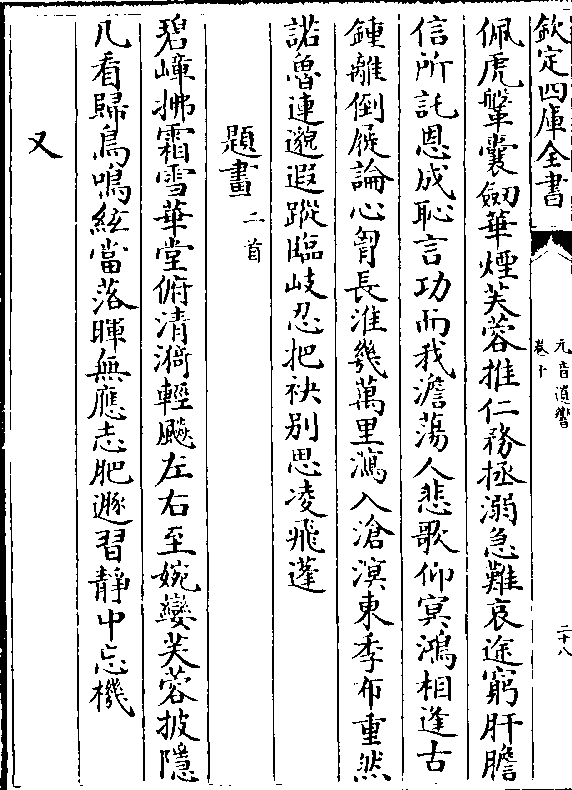 欽定四庫全書
元音遺響
卷十
二十八
佩虎鞶囊劒華煙芙蓉推仁務拯溺急難哀途窮肝膽
信所託恩成恥言功而我澹蕩人悲歌仰㝠鴻相逢古
鍾離倒屐論心胷長淮幾萬里瀉入滄溟東季布重然
諾魯連邈遐蹤臨岐忍把袂别思凌飛蓬
題畫二首
碧嶂拂霜雪華堂俯清漪輕飈左右至婉孌芙蓉披隠
几看歸鳥鳴絃當落暉無應志肥遯習静中忘機
又